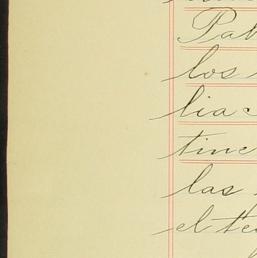 Pab
los
lia c
tinc
las
el te